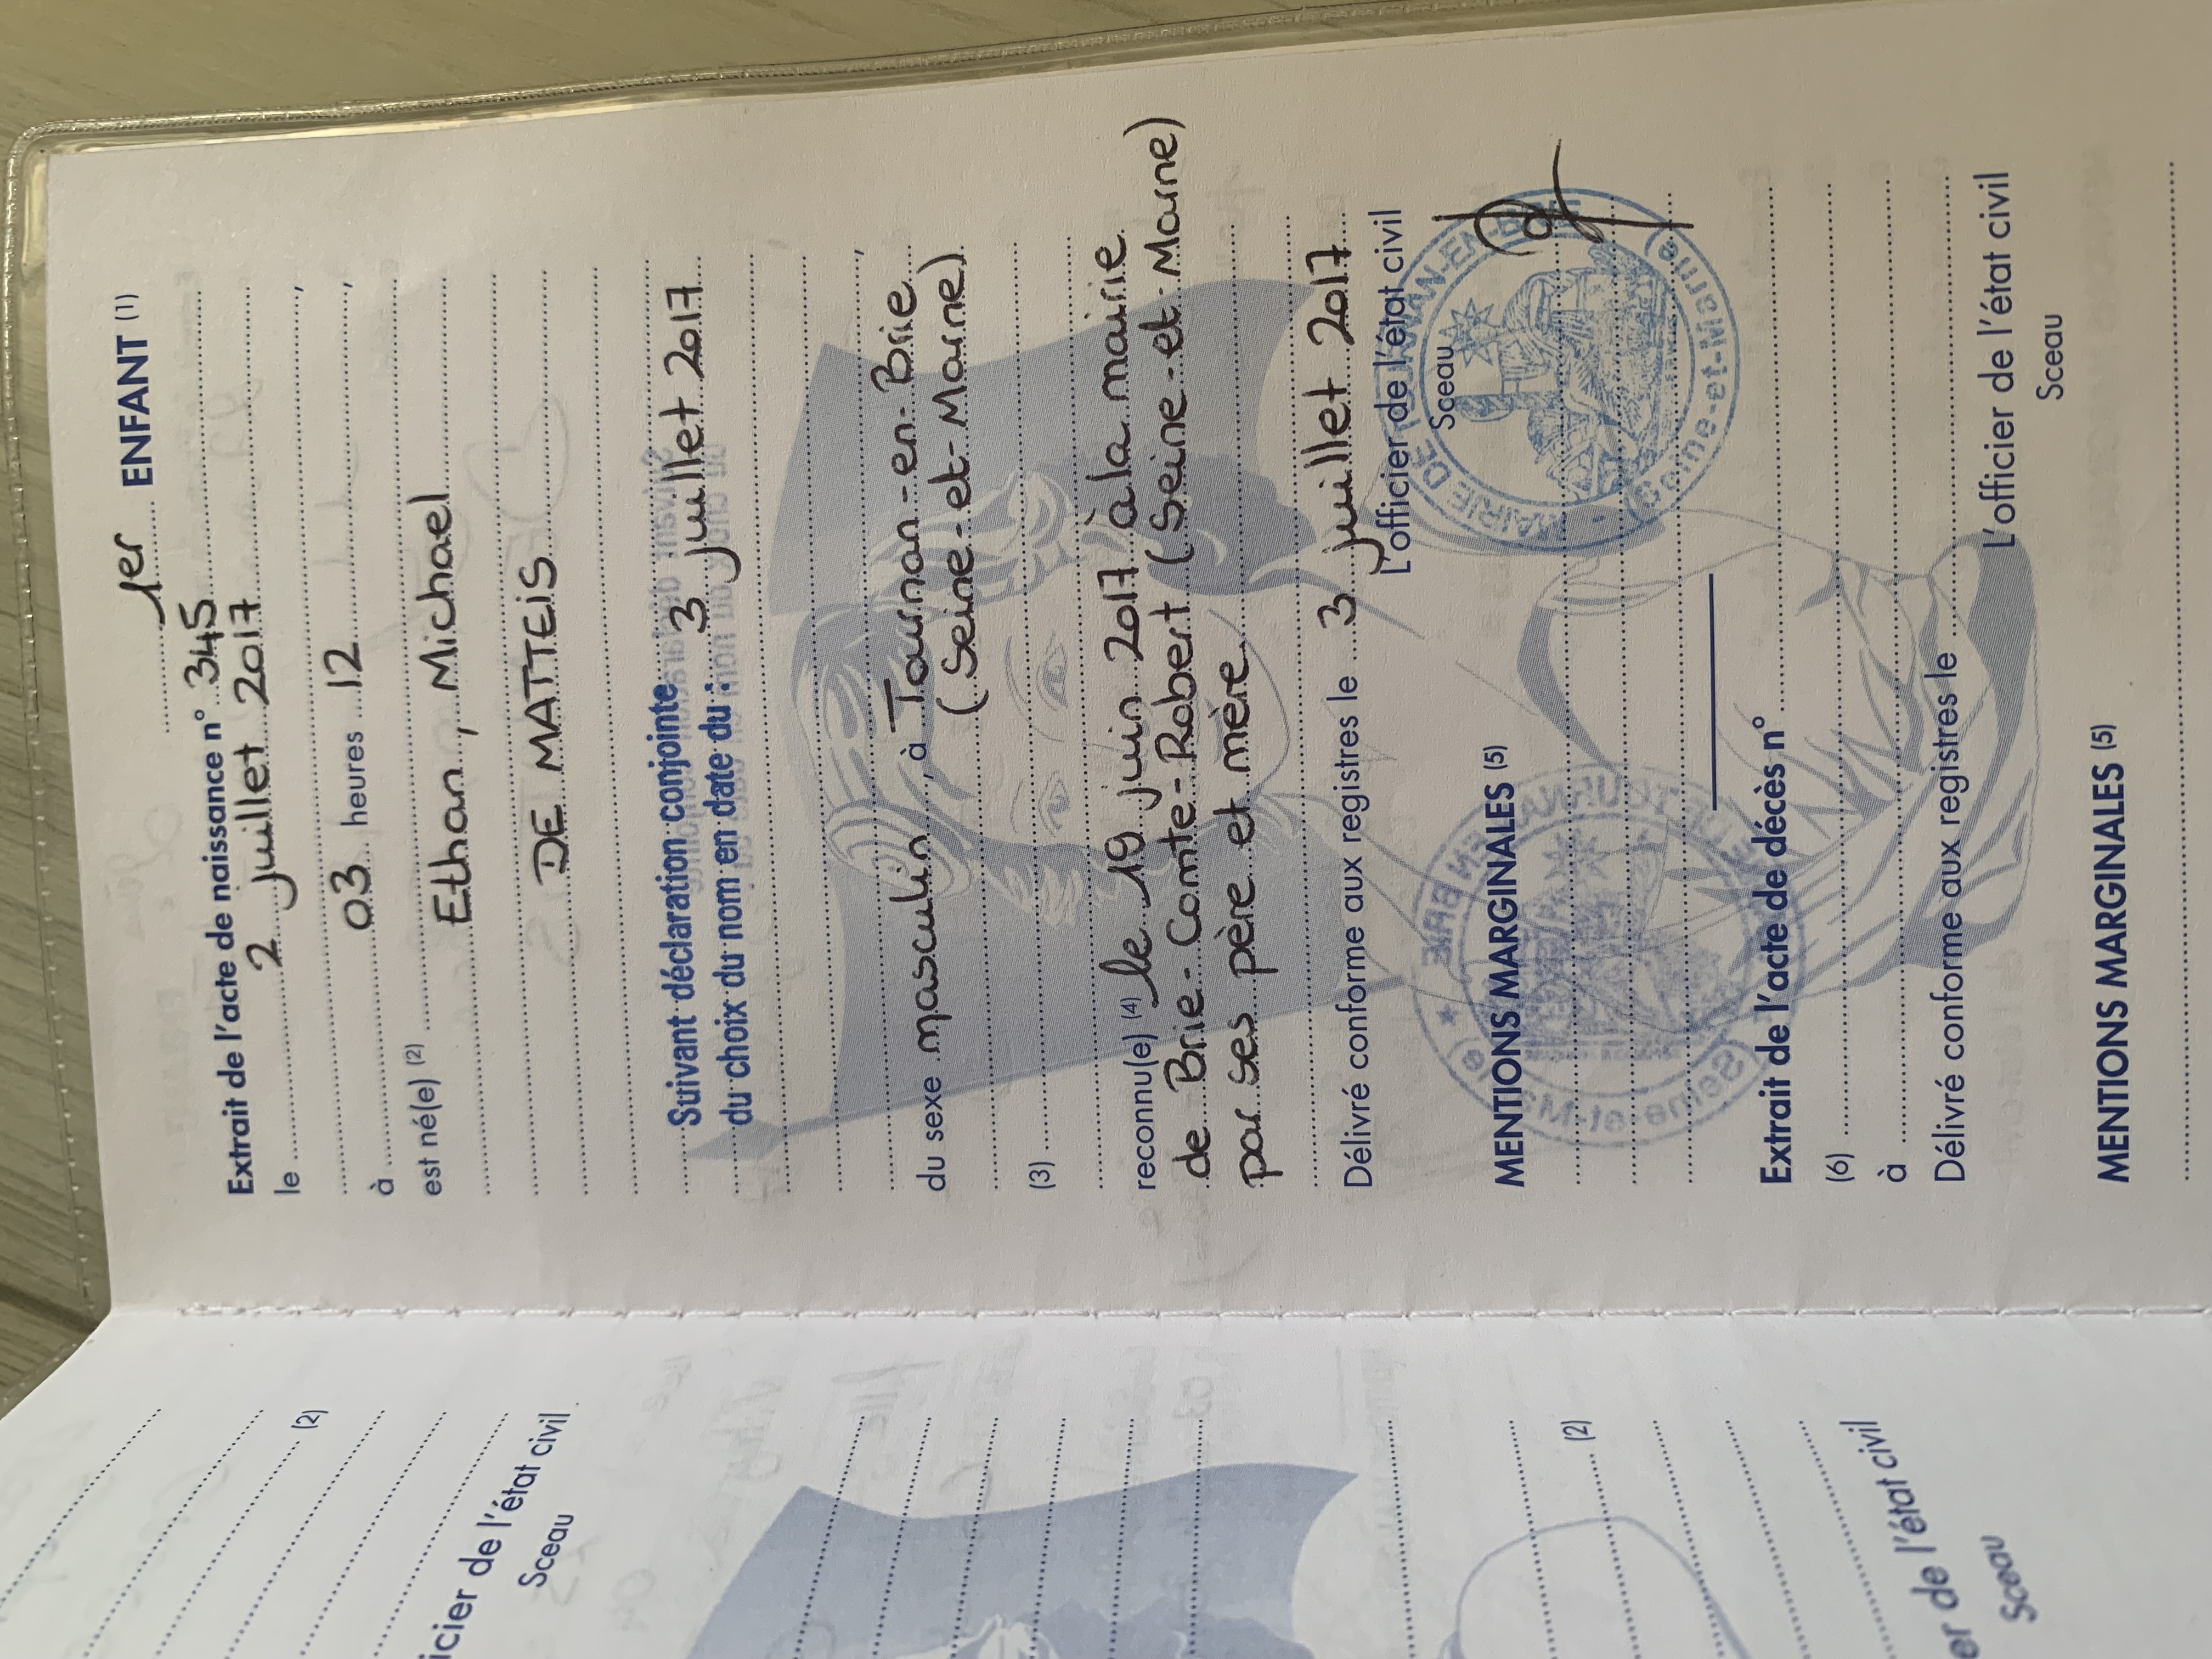 1er ENFANT (1)
Extrait de l'acte de naissance n° 345
le 2 juillet 2017
,
à 03 heures 12 ,
est né(e) (2) Ethan, Michael
DE MATTEIS
Suivant déclaration conjointe
du choix du nom en date du : 3 juillet 2017
,
du sexe masculin, à Tournan-en-Brie
(Seine-et-Marne)
(3)
reconnu(e) (4) le 19 juin 2017 à la mairie
de Brie-Comte-Robert (Seine-et-Marne)
par ses père et mère
Délivré conforme aux registres le 3 juillet 2017
L'officier de l'état civil
Sceau
MAIRIE DE TOURNAN-EN-BRIE
(Seine-et-Marne)
MENTIONS MARGINALES (5)
Extrait de l'acte de décès n°
(6)
à
Délivré conforme aux registres le
L'officier de l'état civil
Sceau
MENTIONS MARGINALES (5)
(2)
icier de l'état civil
Sceau
(2)
er de l'état civil
Sceau